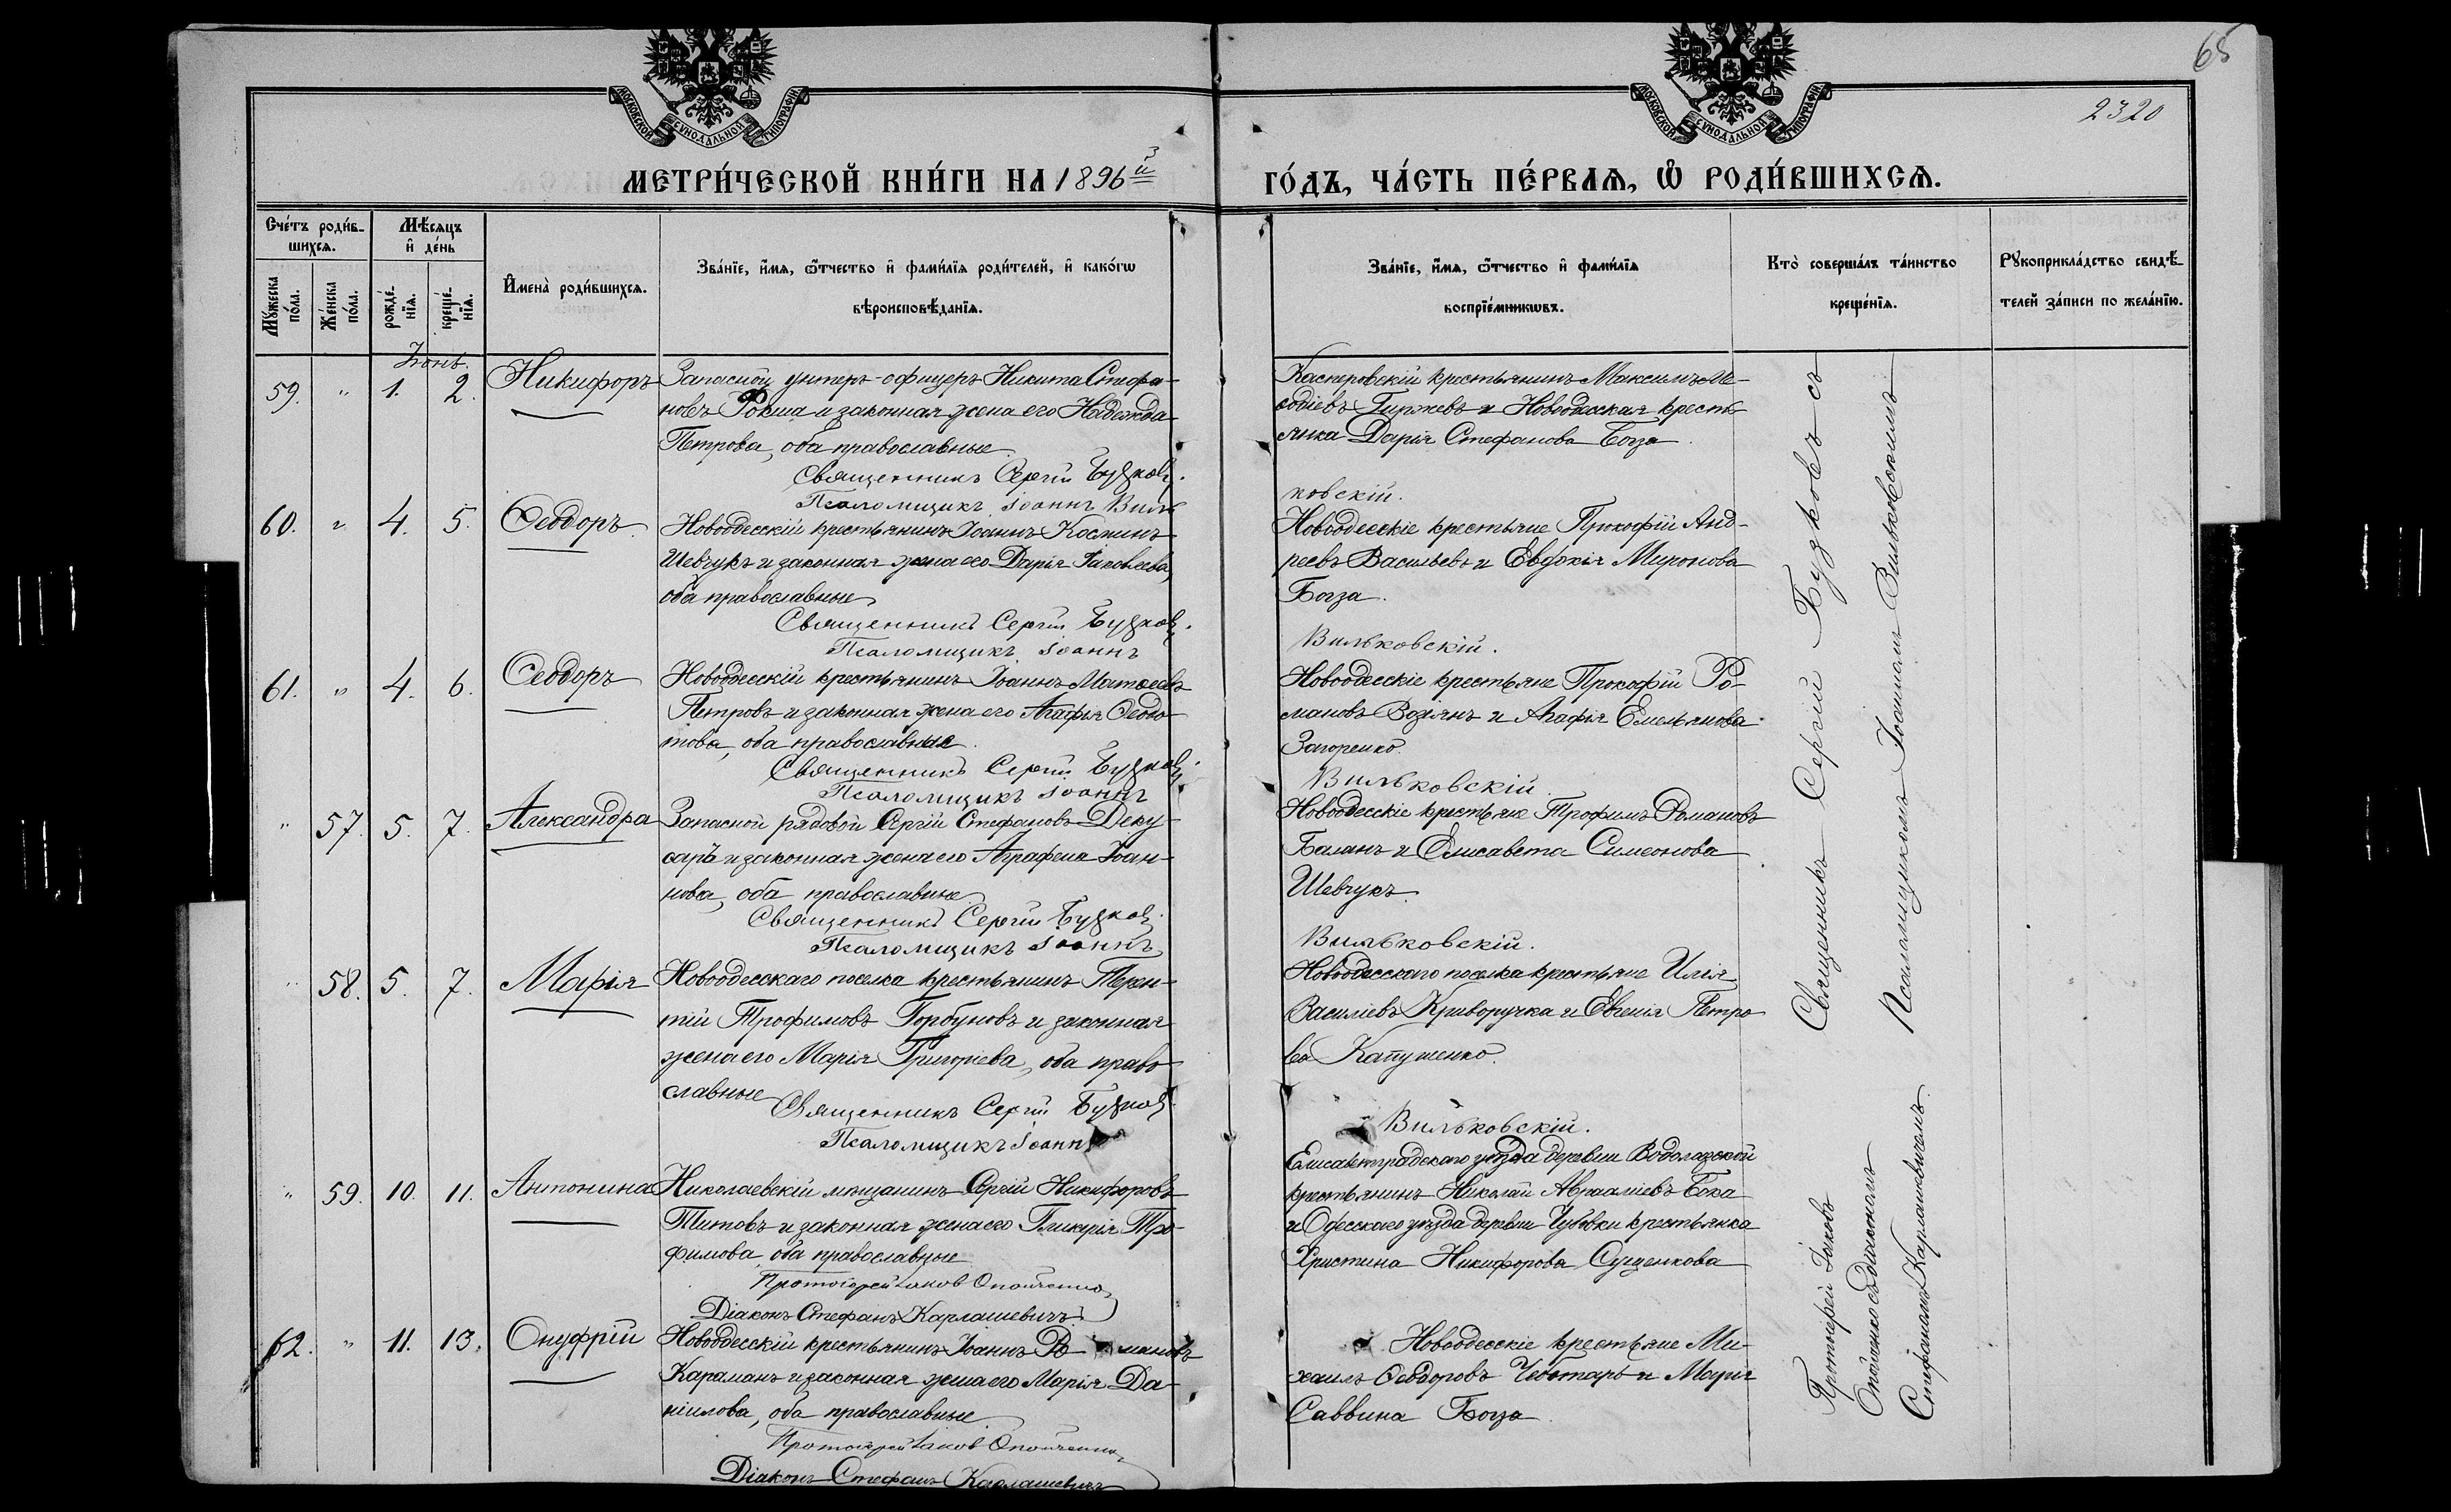 65
2320
МОСКОВСКОЙ СѴНОДАЛЬНОЙ ТИПОГРАФІИ
МОСКОВСКОЙ СѴНОДАЛЬНОЙ ТИПОГРАФІИ
МЕТРИ́ЧЕСКОЙ КНИ́ГИ НА 1896й
ГО́ДЪ, ЧА́СТЬ ПЕ́РВАѦ, Ѡ РОДИ́ВШИХСѦ.
Сче́тъ роди́в-
шихсѧ.
Мѣ́сѧцъ
и де́нь
Мꙋ́жеска
по́ла.
Же́нска
по́ла.
рожде́-
нїѧ.
креще́-
нїѧ.
И҆мена̀ роди́вшихсѧ.
Зва́нїе, и҆́мѧ, ѻ҆́тчество и҆ фами́лїѧ роди́телей, и҆ како́гѡ
вѣроисповѣ́данїѧ.
Зва́нїе, и҆́мѧ, ѻ҆́тчество и҆ фами́лїѧ
воспрїе́мникѡвъ.
Кто̀ соверша́лъ та́инство
креще́нїѧ.
Рꙋкоприкла́дство свидѣ́-
телей за́писи по жела́нїю.
Іюнь.
59. " 1. 2. Никифоръ
Запасной унтеръ-офицеръ Никита Стефа-
новъ Рокша и законная жена его Надежда
Петрова, оба православные.
Священникъ Сергій Бузковъ.
Псаломщикъ Іоаннъ Виль
Касперовскій крестьянинъ Максимъ Ме-
ѳодіевъ Гиржевъ и Новоодесская кресть-
янка Дарія Стефанова Богза.
ковскій.
60. " 4. 5. Ѳеодоръ
Новоодесскій крестьянинъ Іоаннъ Косминъ
Шевчукъ и законная жена его Дарія Іаковлева,
оба православные
Священникъ Сергій Бузковъ.
Псаломщикъ Іоаннъ
Новоодесскіе крестьяне Прокофій Анд-
реевъ Васильевъ и Евдокія Миронова
Богза.
Вильковскій.
61. " 4. 6. Ѳеодоръ
Новоодесскій крестьянинъ Іоаннъ Матѳеевъ
Петровъ и законная жена его Агафія Ѳеодо-
това, оба православные.
Священникъ Сергій Бузковъ.
Псаломщикъ Іоаннъ
Новоодесскіе крестьяне Прокофій Ро-
мановъ Возіянъ и Агафія Емельянова
Загоренко.
Вильковскій.
" 57. 5. 7. Александра
Запасной рядовой Сергій Стефановъ Деку-
саръ и законная жена его Аграфена Іоан-
нова, оба православные.
Священникъ Сергій Бузковъ.
Псаломщикъ Іоаннъ
Новоодесскіе крестьяне Трофимъ Романовъ
Баланъ и Елисавета Симеонова
Шевчукъ.
Вильковскій.
" 58. 5. 7. Марія
Новоодесскаго поселка крестьянинъ Терен-
тій Трофимовъ Горбуновъ и законная
жена его Марія Григоріева, оба право-
славные
Священникъ Сергій Бузковъ.
Псаломщикъ Іоаннъ
Новоодесскаго поселка крестьяне Илія
Василіевъ Криворучка и Евгенія Петро
ва Капушенко.
Вильковскій.
" 59. 10. 11. Антонина
Николаевскій мѣщанинъ Сергій Никифоровъ
Титовъ и законная жена его Гликерія Тро-
фимова, оба православные
Протоіерей Іаковъ Опойченко
Діаконъ Стефанъ Карлашевичъ.
Елисаветградскаго уѣзда деревни Водолазской
крестьянинъ Николай Авраамiевъ Бока
и Одесскаго уѣзда деревни Чубовки крестьянка
Христина Никифорова Сущенкова
62. " 11. 13. Онуфрій
Новоодесскій крестьянинъ Іоаннъ Романовъ
Караманъ и законная жена его Марія Да-
ніилова, оба православные.
Протоіерей Іаковъ Опойченко
Діаконъ Стефанъ Карлашевичъ
Новоодесскіе крестьяне Ми-
хаилъ Ѳеодоровъ Чеботарь и Марія
Саввина Богза.
Священникъ Сергій Бузковъ съ
Псаломщикомъ Іоанномъ Вильковскимъ
Протоіерей Іаковъ
Опойченко съ діакономъ
Стефаномъ Карлашевичемъ.